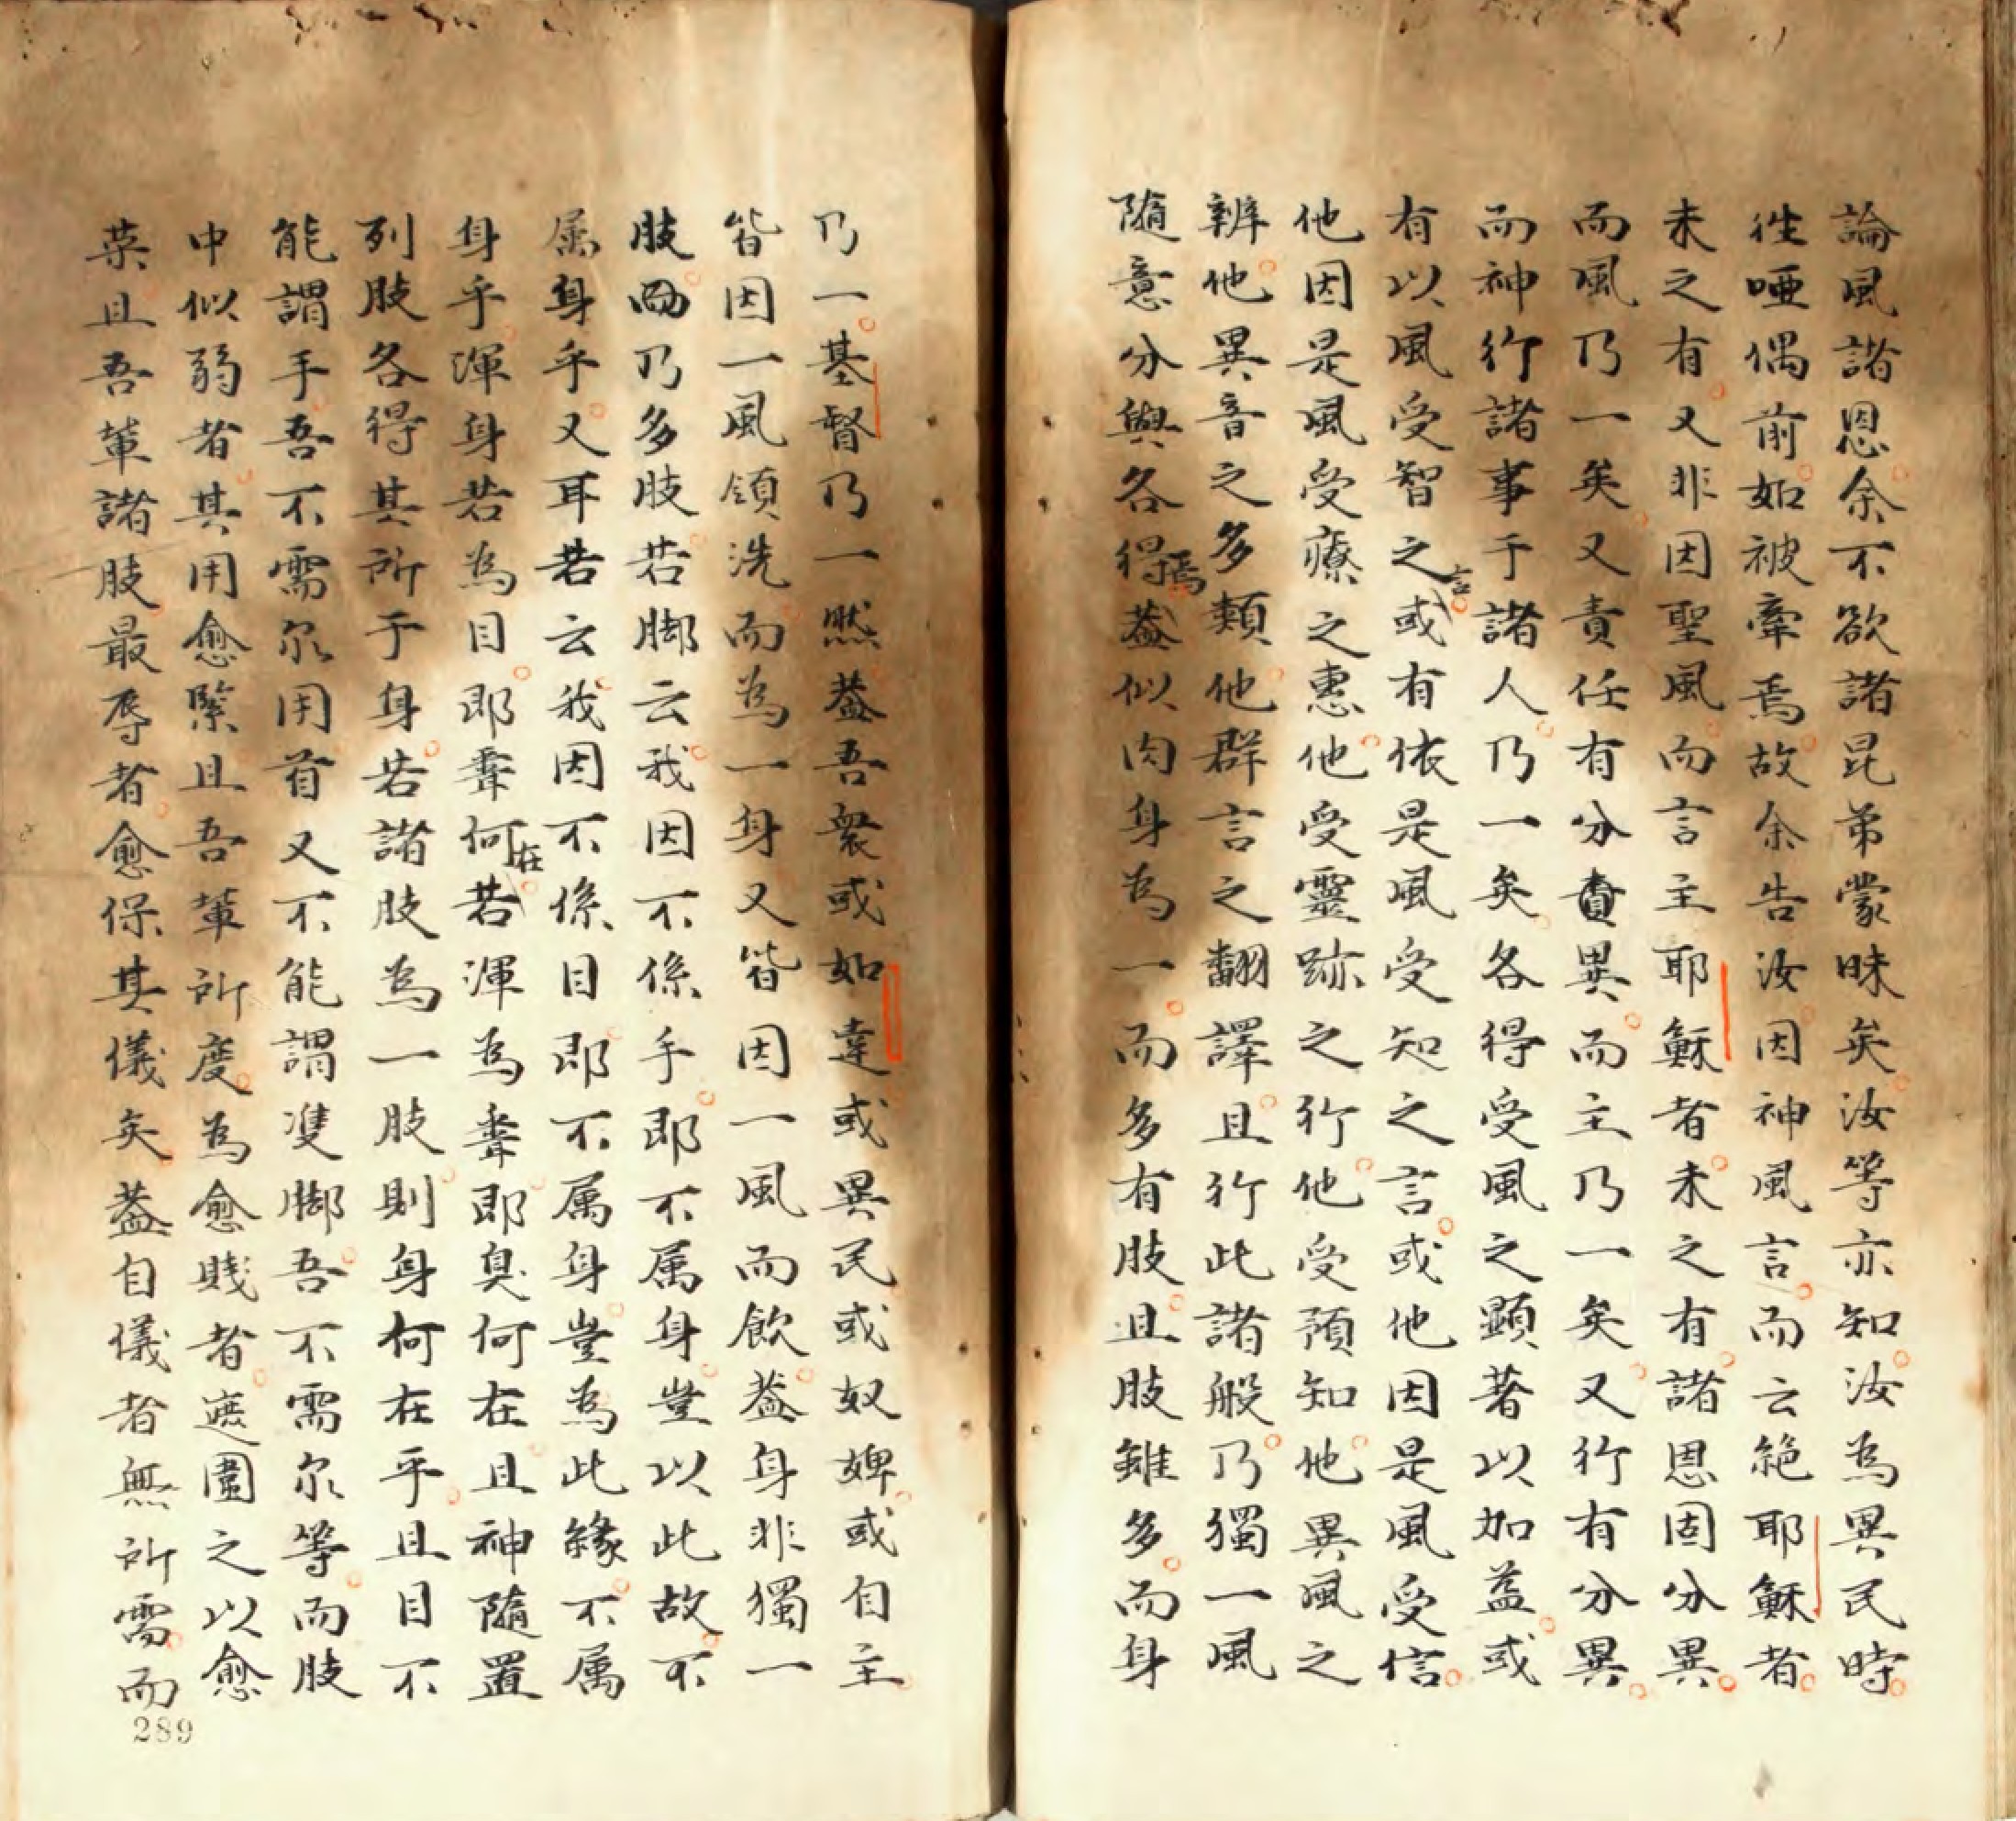 論風諸恩余不欲諸昆弟蒙昧矣汝等亦知汝為異民時
徃啞偶前如被牽焉故余告汝因神風言而云絕耶穌者
未之有又非因聖風而言主耶穌者未之有諸恩固分異
而風乃一矣又責任有分異而主乃一矣又行有分異
而神行諸事于諸人乃一矣各得受風之顯著以加益或
有以風受智之言或有依是風受知之言或他因是風受信
他因是風受療之惠他受靈跡之行他受預知他異風之
辨他異音之多類他群言之翻譯且行此諸般乃獨一風
隨意分與各得焉蓋似肉身為一而多有肢且肢雖多而身
乃一基督乃一然蓋吾衆或如達或異民或奴婢或自主
皆因一風領洗而為一身又皆因一風而飲蓋身非獨一
肢乃多肢若脚云我因不係手即不属身豈以此故不
属身乎又耳若云我因不係目即不属身豈為此緣不属
身乎渾身若為目即聾何在若渾為聾即臭何在且神隨置
列肢各得其所于身若諸肢為一肢則身何在乎且目不
能謂手吾不需尔用首又不能謂雙脚吾不需尔等而肢
中似弱者其用愈緊且吾輩所度為愈賤者遮圍之以愈
荣且吾輩諸肢最辱者愈保其儀矣蓋自儀者無所需而
289